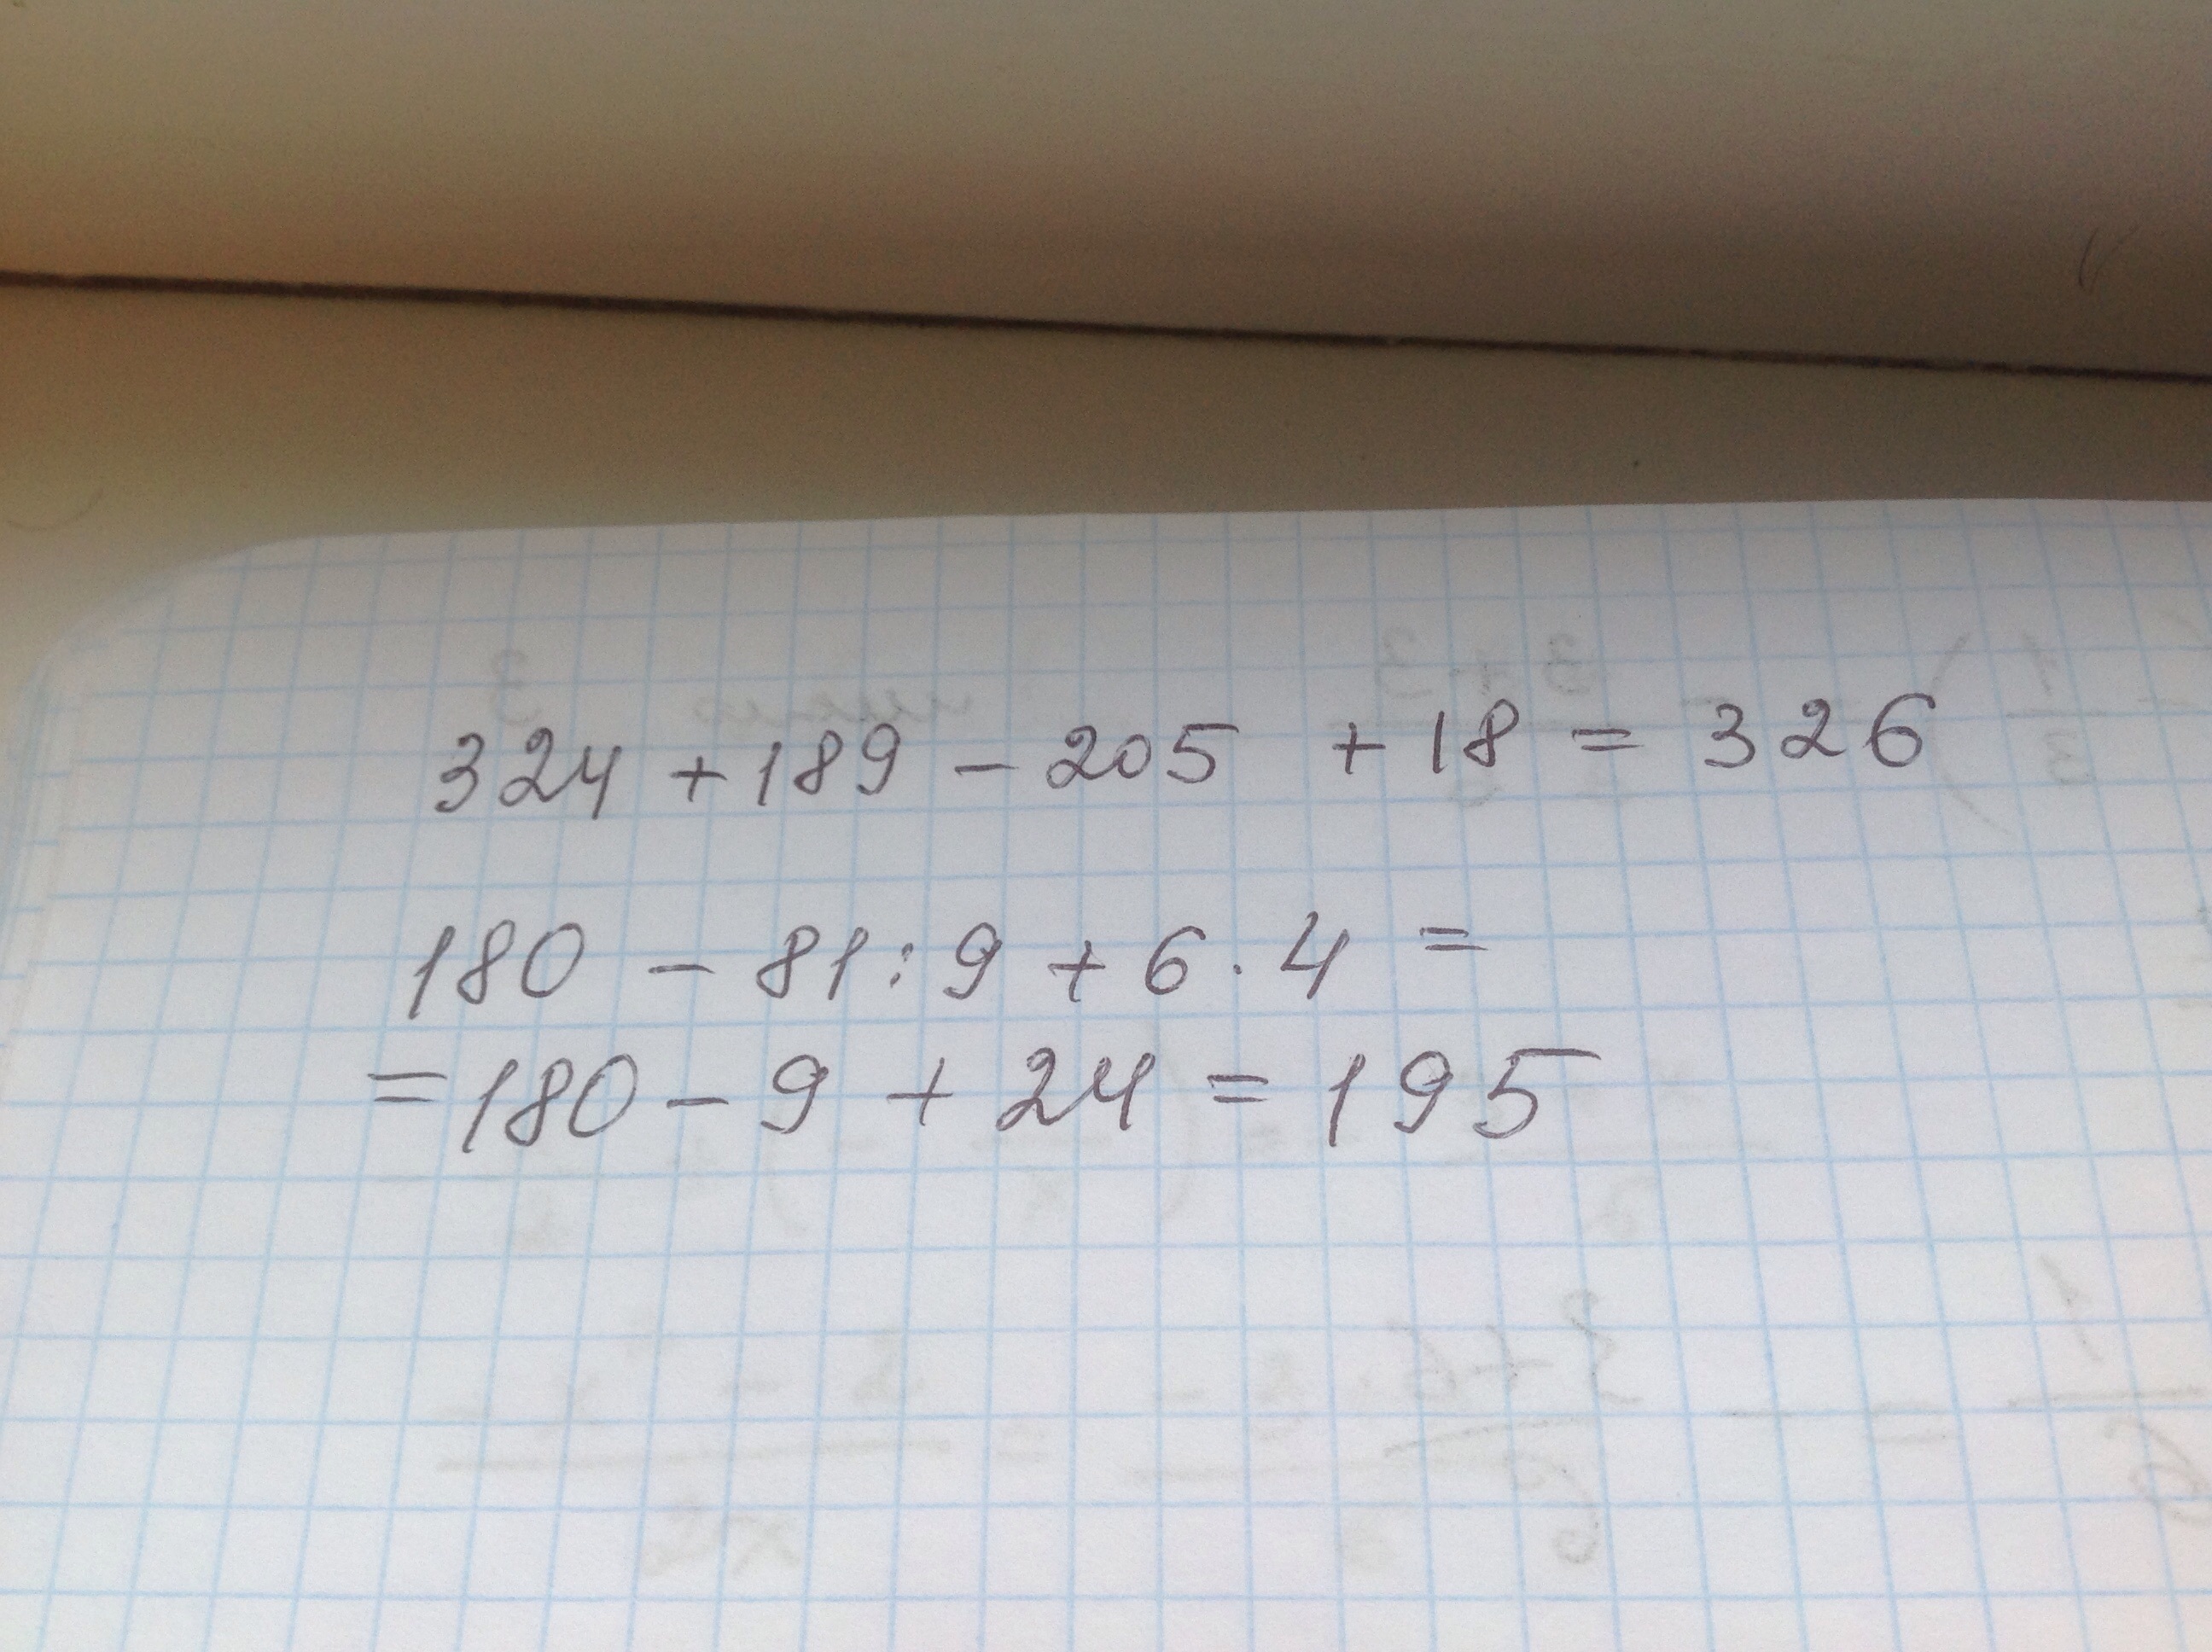 324 + 189 - 205 + 18 = 326
180 - 81 : 9 + 6 · 4 =
= 180 - 9 + 24 = 195